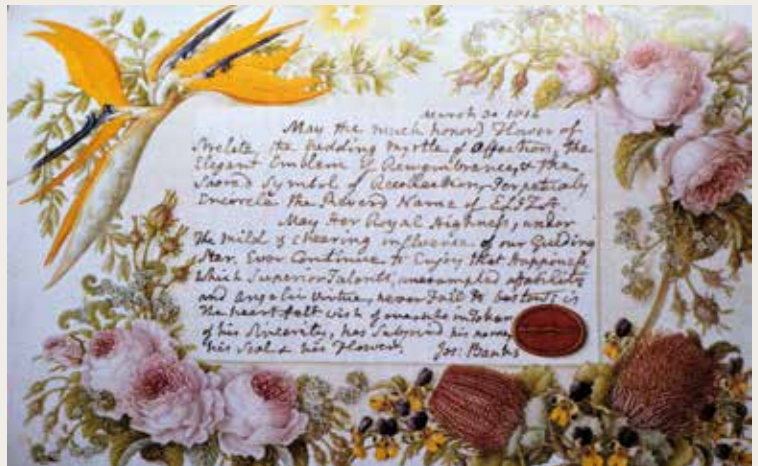 March 30 181
May the much honor'd Flower of
Strelitz, the nodding Myrtle of Affection, the
Elegant Emblem of Remembrance, & the
Sacred Symbol of Recollection, Perpetualy
Encircle the Ador'd Name of
May Her Royal Highness, under
the mild & chearing influence of our Guiding
Star, Ever Continue to Enjoy that Happiness
which Superior Talents, unexampled affability
and angelic virtue, never Fail to bestow, is
the heart felt wish of one who in Token
of his Sincerity, has Subjoind his name
his Seal & his Flower.
Jos: Banks